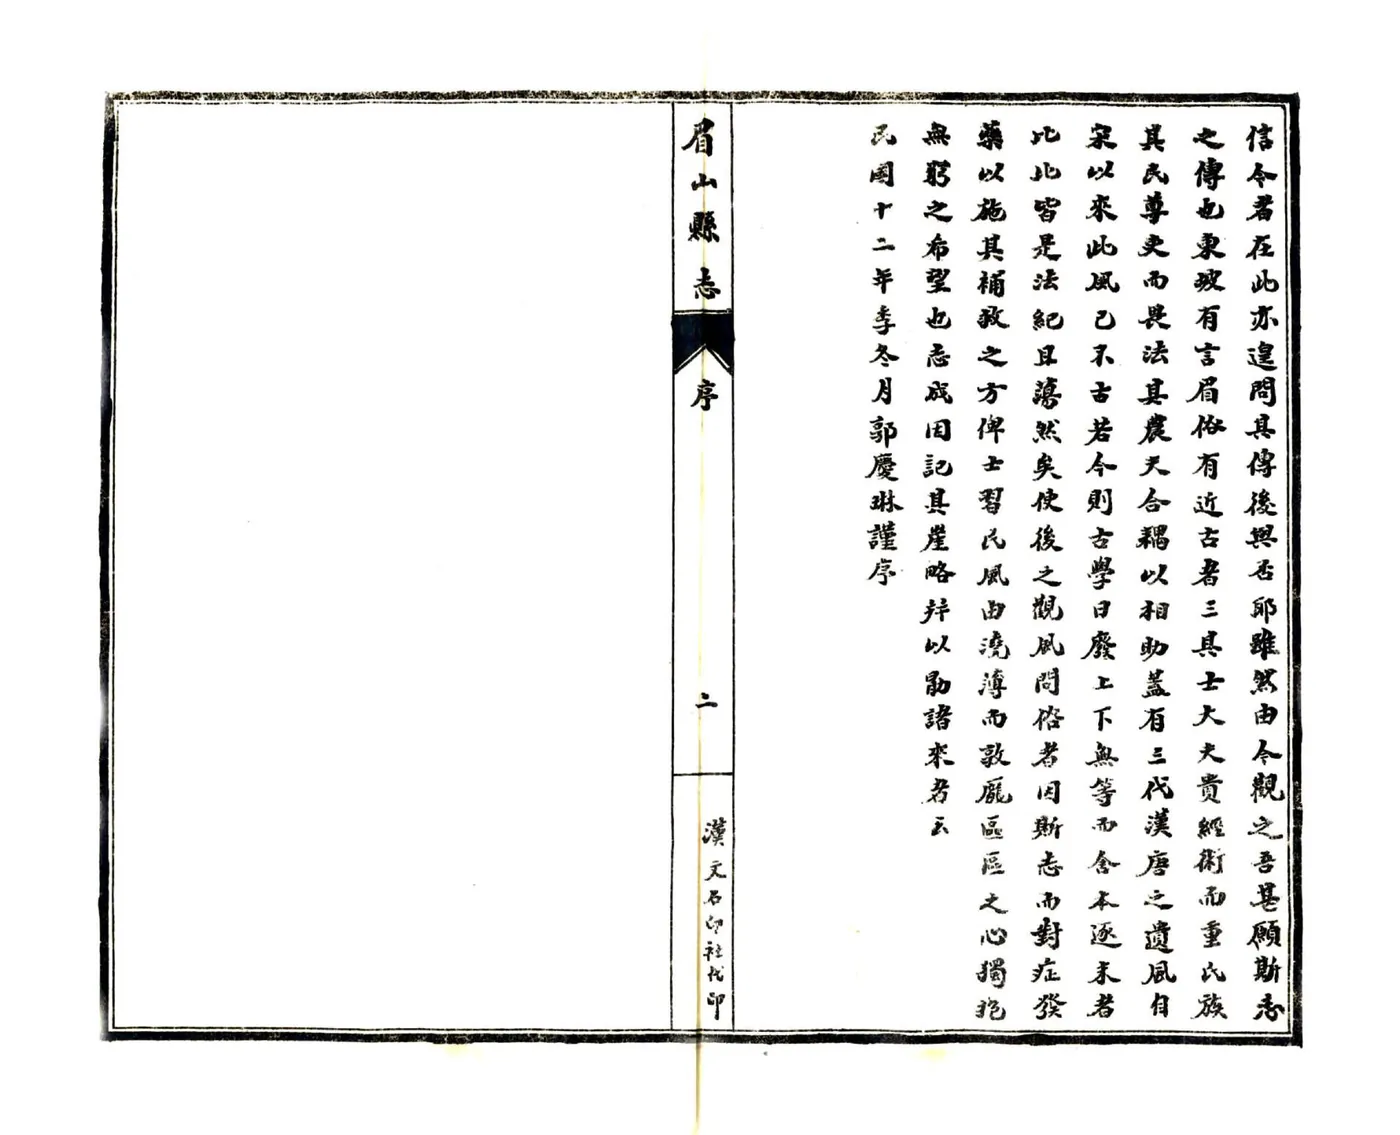 信今者在此亦遑問其傳後與否耶雖然由今觀之吾甚願斯志
之傳也東坡有言眉俗有近古者三其士大夫貴經術而重氏族
其民尊吏而畏法其農夫合耦以相助蓋有三代漢唐之遺風自
宋以來此風已不古若今則古學日廢上下無等而舍本逐末者
比比皆是法紀且蕩然矣使後之觀風問俗者因斯志而對症發
藥以施其補救之方俾士習民風由澆薄而敦龐區區之心獨抱
無窮之希望也志成因記其崖略弁以勗諸來者云
民國十二年季冬月郭慶琳謹序
眉山縣志
序
二
漢文石印社代印